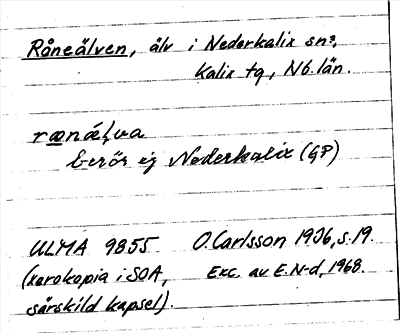 Råneälven, älv i Nederkalix sn?,
Kalix tg, Nb. län.
rænǽļva
berör ej Nederkalix (GP)
ULMA 9855 O. Carlsson 1936, s. 19.
(xerokopia i SOA, Exc. av E. N-d, 1968.
särskild kapsel).